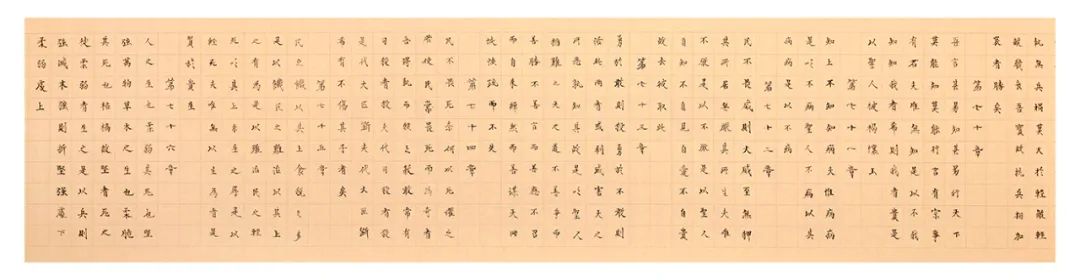 執無兵禍莫大於輕敵輕
敵幾喪吾寶故抗兵相加
哀者勝矣
第七十章
吾言甚易知甚易行天下
莫能知莫能行言有宗事
有君夫唯無知是以不我
知知我者希則我者貴是
以聖人被褐懷玉
第七十一章
知不知上不知知病夫惟病病
是以不病聖人不病以其
病病是以不病
第七十二章
民不畏威則大威至無狎
其所居無厭其所生夫唯
不厭是以不厭是以聖人
自知不自見自愛不自貴
故去彼取此
第七十三章
勇於敢則殺勇於不敢則
活此兩者或利或害天之
所惡孰知其故是以聖人
猶難之天之道不爭而
善勝不言而善應不召
而自來繟然而善謀天網
恢恢疏而不失
第七十四章
民不畏死奈何以死懼之
若使民常畏死而為奇者
吾得執而殺之孰敢常有
司殺者殺夫代司殺者殺
是代大匠斲夫代大匠斲
者希有不傷其手者矣
第七十五章
民之饑以其上食稅之多
是以饑民之難治以其上
之有為是以難治民之輕
死以其上求生之厚是以
輕死夫唯無以生為者是
賢於貴生
第七十六章
人之生也柔弱其死也堅
強萬物草木之生也柔脆
其死也枯槁故堅強者死之
徒柔弱者生之徒是以兵則
強滅木強則折堅強處下
柔弱處上